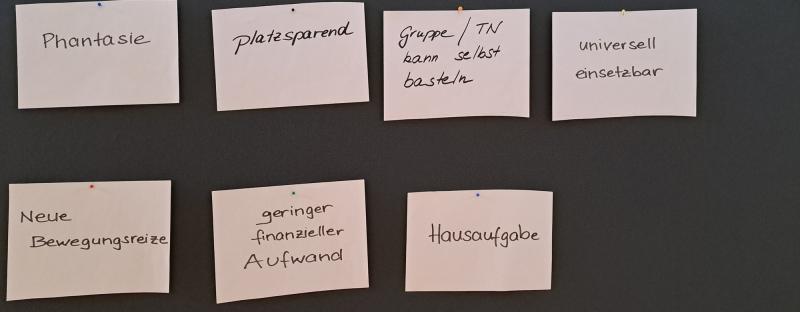 Phantasie
Platzsparend
Gruppe / TN
kann selbst
basteln
universell
einsetzbar
Neue
Bewegungsreize
geringer
finanzieller
Aufwand
Hausaufgabe